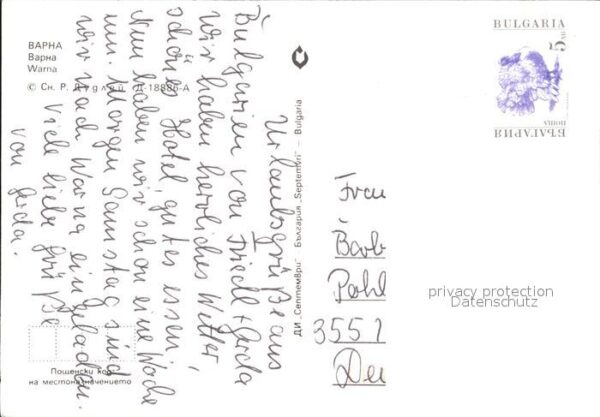 ВАРНА
Варна
Warna
© Сн. Р. Дудлий Д-18886-А
Urlaubsgrüße aus
Bulgarien von Friedl + Gerda
wir haben herrliches Wetter,
schönes Hotel, gutes essen,
Nun haben wir schon eine Woche
um. Morgen Samstag sind
wir nach Warna eingeladen.
Viele liebe Grüße
von Gerda.
ДИ „Септември" — България „Septemvri" — Bulgaria
Пощенски код
на местоназначението
BULGARIA
5
ПОЩА
БЪЛГАРИЯ
Frau
Barb
Pohl
3551
Deu
privacy protection
Datenschutz